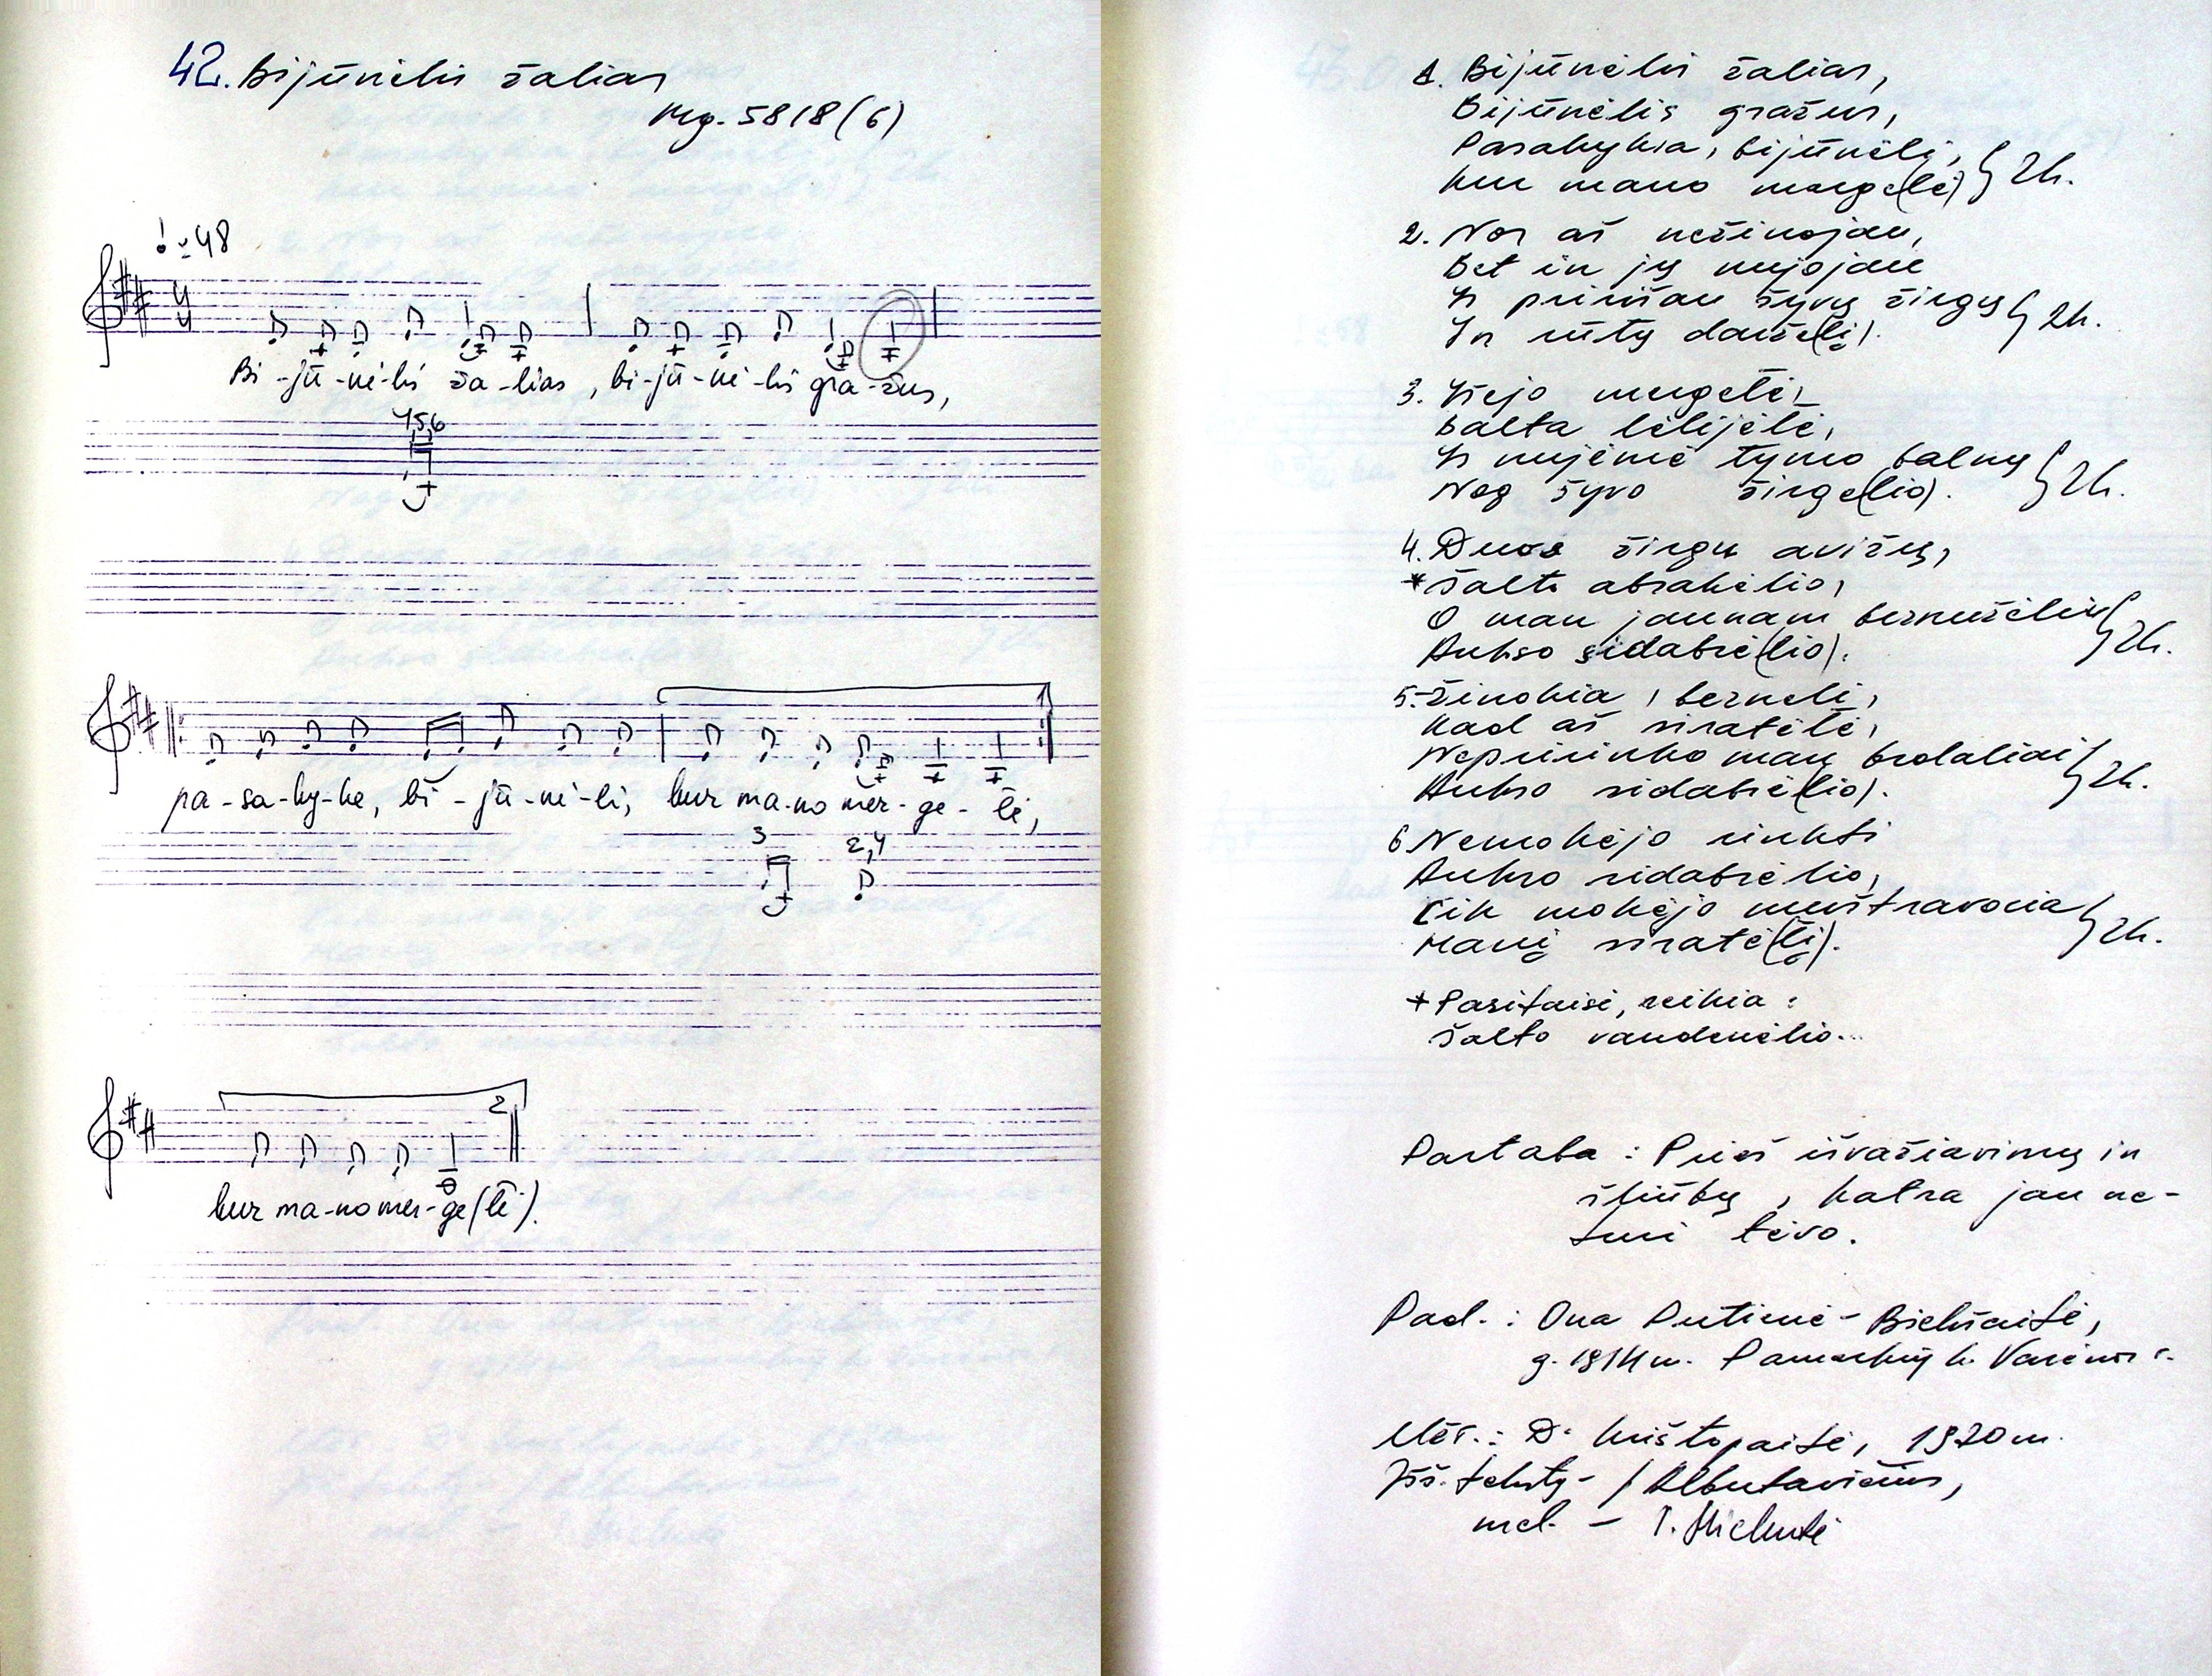 42. Bijūnėlis žalias
Mg. 5818(6)
♩=48
4
4
Bi-jū-nė-lis ža-lias, bi-jū-nė-lis gra-žus,
4,5,6
1
pa-sa-ky-ke, bi-jū-nė-li, kur ma-no mer-ge-lė,
3 2,4
2
kur ma-no mer-ge(lė).
1. Bijūnėlis žalias,
Bijūnėlis gražus,
Pasakykia, bijūnėli,
Kur mano merge(lė) } 2k.
2. Nor aš nežinojau,
Bet in jų nujojau
Ir pririšau šyvų žirgų } 2k.
In rūtų darže(lį).
3. Išejo mergelė,
Balta lėlijėlė,
Ir nujėmė tymo balnų } 2k.
Nog šyvo žirge(lio).
4. Duos žirgu avižų,
* Šalto abrakėlio,
O man jaunam berneužėliu } 2k.
Aukso sidabrė(lio).
5. Žinokia, berneli,
Kad aš siratėlė,
Nepririnko man brolaliai } 2k.
Aukso sidabrė(lio).
6 Nemokėjo rinkti
Aukso sidabrėlio,
Tik mokėjo muštravocia } 2k.
Manį siratė(lį).
* Pasitaisė, reikia:
Šalto vandenėlio...
Pastaba: Prieš išvažiavimų in
šliūbų, katra jau ne-
turi tėvo.
Pad.: Ona Putienė-Biekšaitė,
g. 1914 m. Pamerkių k. Varėnos r.
Užr.: D. Krištopaitė, 1970 m.
Išš. tekstą - J. Albutavičius,
mel. -